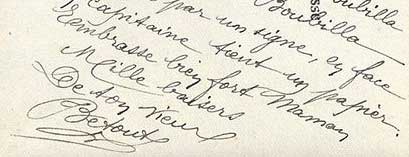 Boubilla
par un signe, en face
Capitaine tient un papier.
J'embrasse bien fort Maman
Mille baisers
De ton vieux